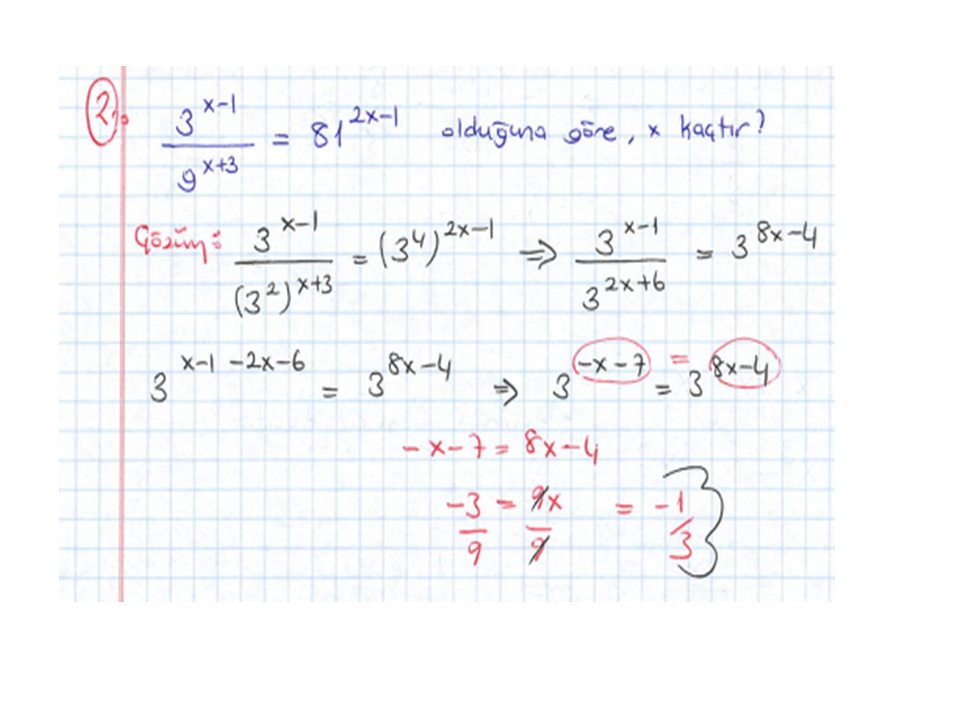 2.
3^(x-1) / 9^(x+3) = 81^(2x-1) olduğuna göre, x kaçtır?
Çözüm: 3^(x-1) / (3^2)^(x+3) = (3^4)^(2x-1) ⇒ 3^(x-1) / 3^(2x+6) = 3^(8x-4)
3^(x-1-2x-6) = 3^(8x-4) ⇒ 3^(-x-7) = 3^(8x-4)
-x-7 = 8x-4
-3/9 = 9x/9 = -1/3